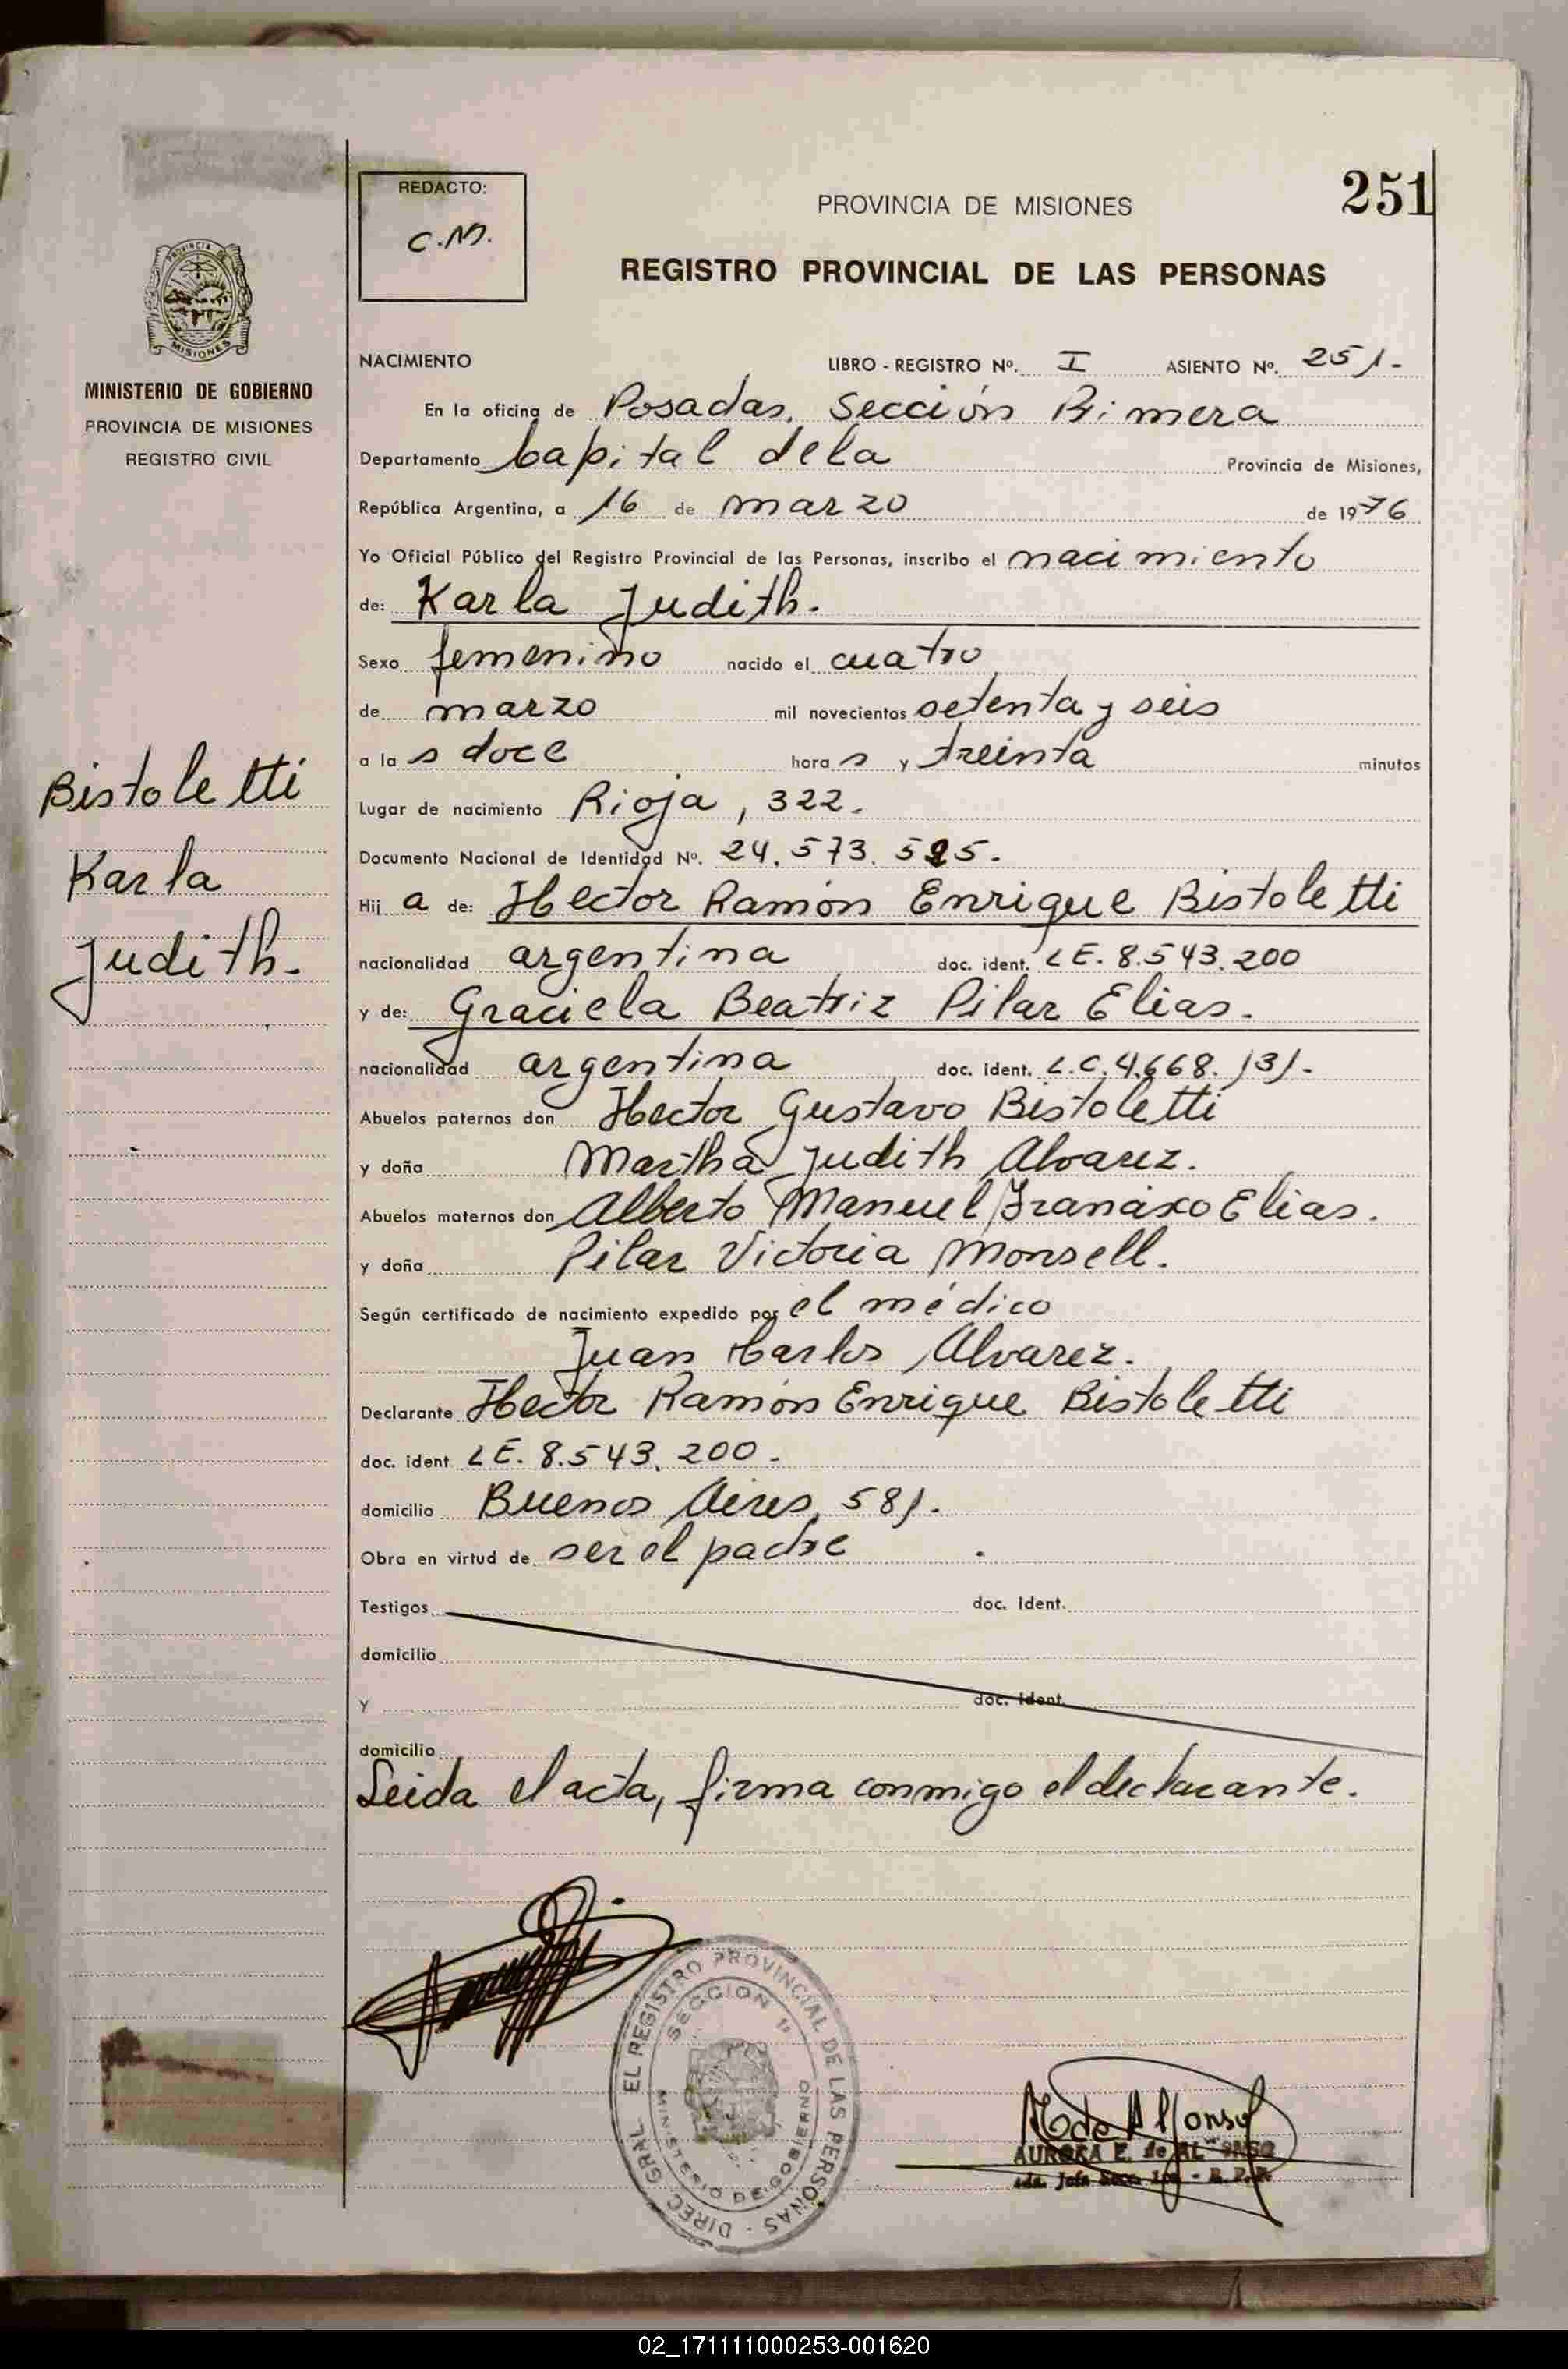 REDACTO:
C.M.
PROVINCIA DE MISIONES
251
REGISTRO PROVINCIAL DE LAS PERSONAS
PROVINCIA DE
MISIONES
MINISTERIO DE GOBIERNO
PROVINCIA DE MISIONES
REGISTRO CIVIL
NACIMIENTO LIBRO - REGISTRO Nº. I ASIENTO Nº. 251.-
En la oficina de Posadas, Sección Primera
Departamento Capital de la Provincia de Misiones,
República Argentina, a 16 de marzo de 1976
Yo Oficial Público del Registro Provincial de las Personas, inscribo el nacimiento
de: Karla Judith.
Sexo femenino nacido el cuatro
de marzo mil novecientos setenta y seis
a la s doce hora s y treinta minutos
Bistoletti
Karla
Judith.-
Lugar de nacimiento Rioja, 322.
Documento Nacional de Identidad Nº. 24.573.525.
Hij a de: Hector Ramón Enrique Bistoletti
nacionalidad argentina doc. ident. LE. 8.543.200
y de: Graciela Beatriz Pilar Elias.
nacionalidad argentina doc. ident. L.C. 4.668.131.-
Abuelos paternos don Hector Gustavo Bistoletti
y doña Martha Judith Alvarez.
Abuelos maternos don Alberto Manuel Francisco Elias.
y doña Pilar Victoria Monsell.
Según certificado de nacimiento expedido por el médico
Juan Carlos Alvarez.
Declarante Hector Ramón Enrique Bistoletti
doc. ident. LE. 8.543.200.-
domicilio Buenos Aires, 581.
Obra en virtud de ser el padre .
Testigos doc. ident.
domicilio
y doc. ident.
domicilio
Leida el acta, firma conmigo el declarante.
DIREC. GRAL. EL REGISTRO PROVINCIAL DE LAS PERSONAS
SECCION 1ª
MINISTERIO DE GOBIERNO
A E de Alfonso
AURORA E. de ALFONSO
02_171111000253-001620